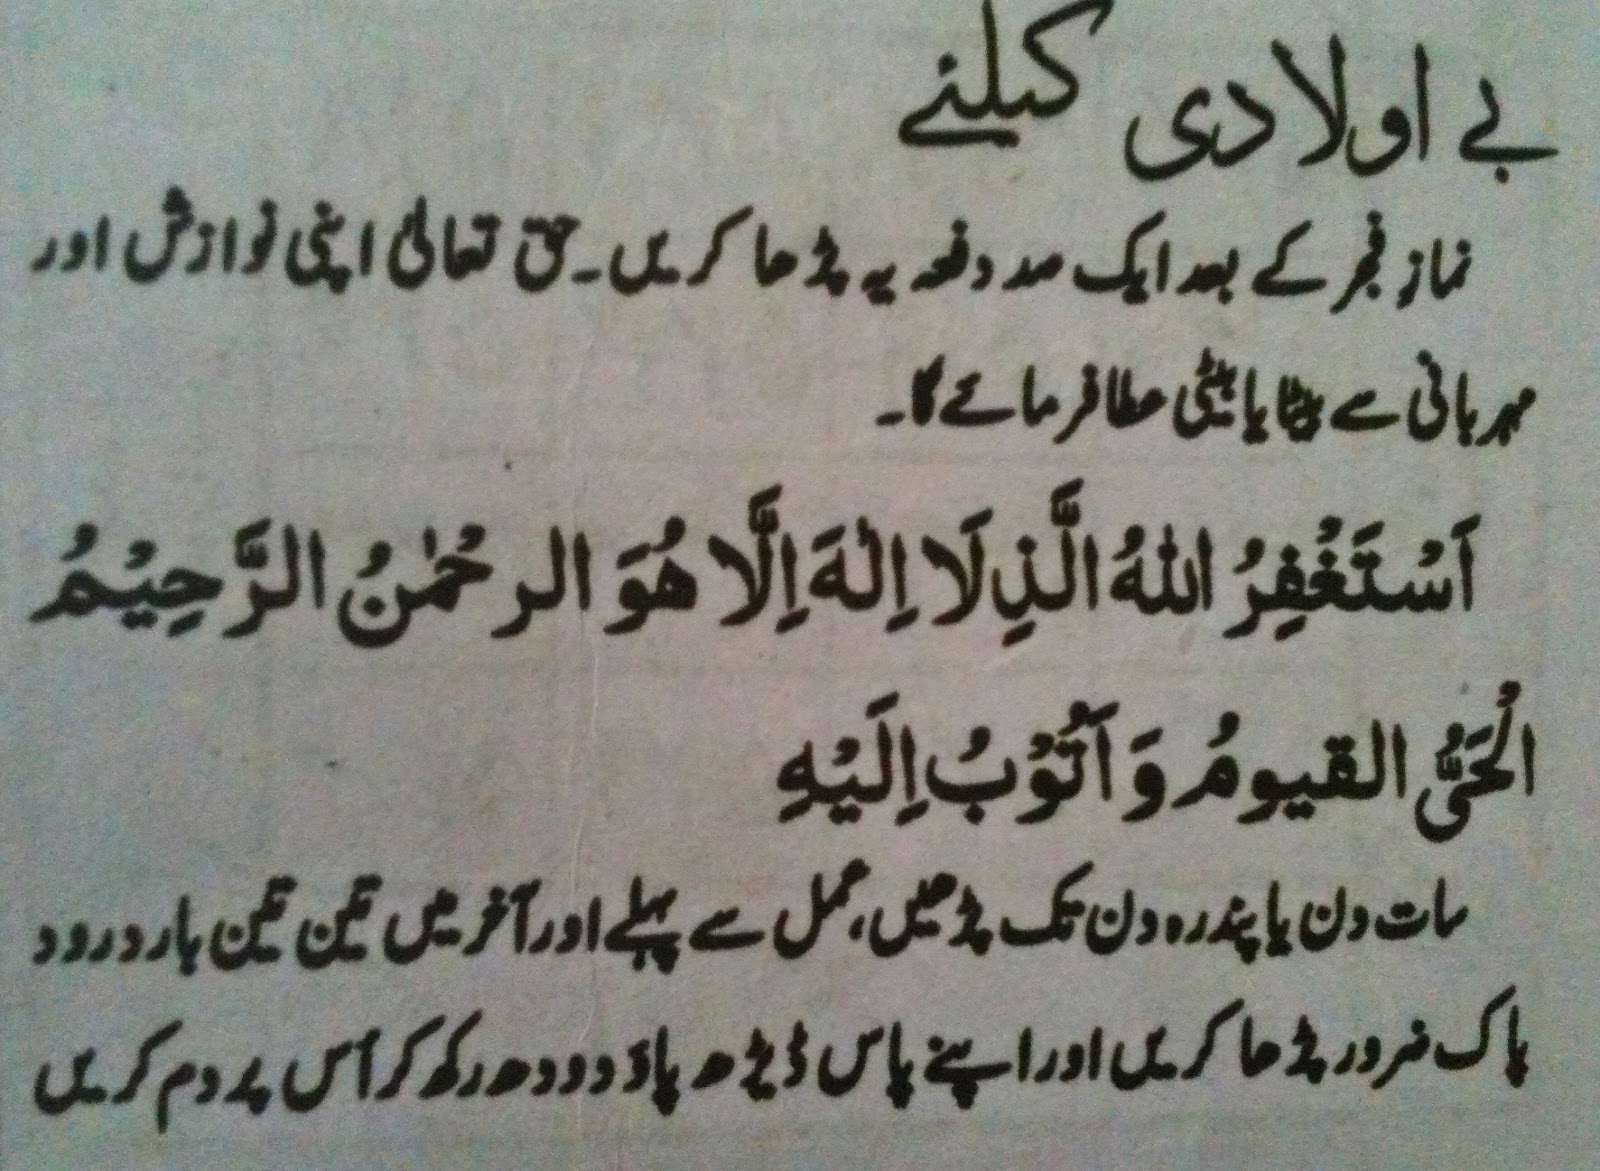 بے اولادی کیلئے
نمازِ فجر کے بعد ایک صد دفعہ یہ پڑھا کریں۔ حق تعالیٰ اپنی نوازش اور
مہربانی سے بیٹا یا بیٹی عطا فرمائے گا۔
اَسْتَغْفِرُ اللهُ الَّذِ لَا اِلٰهَ اِلَّا هُوَ الرحْمٰنُ الرَّحِيْمُ
الْحَيُّ القيومُ وَ اَتُوْبُ اِلَيْهِ
سات دن یا پندرہ دن تک پڑھیں، عمل سے پہلے اور آخر میں تین تین بار درود
پاک ضرور پڑھا کریں اور اپنے پاس ڈیڑھ پاؤ دودھ رکھ کر اُس پر دم کریں